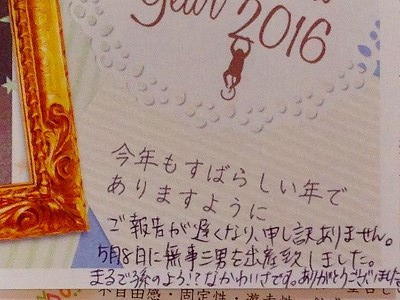 Year
2016
今年もすばらしい年で
ありますように
ご報告が遅くなり、申し訳ありません。
5月8日に無事三男を出産致しました。
まるで孫のよう!?なかわいさです。ありがとうございました
不自由感・固定性・遊走性